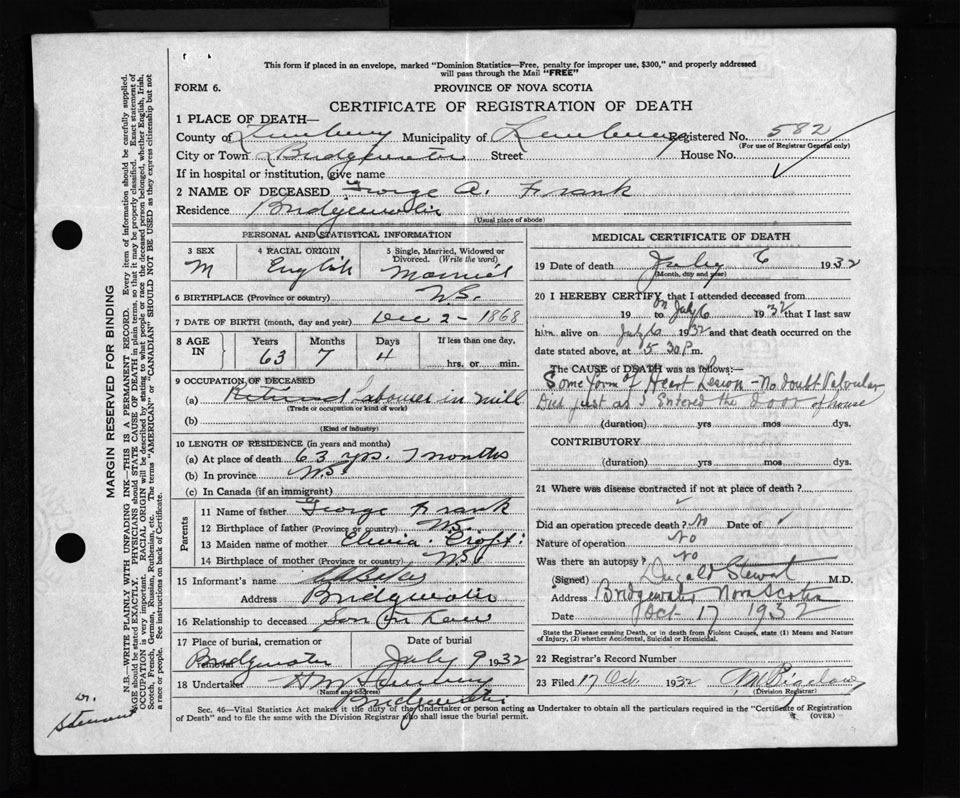 This form if placed in an envelope, marked "Dominion Statistics—Free, penalty for improper use, $300," and properly addressed
will pass through the Mail "FREE"
FORM 6.
PROVINCE OF NOVA SCOTIA
CERTIFICATE OF REGISTRATION OF DEATH
1 PLACE OF DEATH—
County of Lunenburg Municipality of Lunenburg Registered No. 582
(For use of Registrar General only)
City or Town Bridgewater Street House No.
If in hospital or institution, give name
2 NAME OF DECEASED George A. Frank
Residence Bridgewater
(Usual place of abode)
PERSONAL AND STATISTICAL INFORMATION
3 SEX 4 RACIAL ORIGIN 5 Single, Married, Widowed or
Divorced. (Write the word)
M English Married
6 BIRTHPLACE (Province or country) N.S.
7 DATE OF BIRTH (month, day and year) Dec 2 - 1868
8 AGE IN Years Months Days If less than one day,
63 7 4 hrs. or min.
9 OCCUPATION OF DECEASED
(a) Retired Labourer in mill
(Trade or occupation or kind of work)
(b)
(Kind of industry)
10 LENGTH OF RESIDENCE (in years and months)
(a) At place of death 63 yrs. 7 months
(b) In province N.S
(c) In Canada (if an immigrant)
Parents
11 Name of father George Frank
12 Birthplace of father (Province or country) N.S.
13 Maiden name of mother Croft
14 Birthplace of mother (Province or country) N.S
15 Informant's name
Address Bridgewater
16 Relationship to deceased Son in Law
17 Place of burial, cremation or removal Date of burial
Bridgewater July 9 1932
18 Undertaker H M
(Name and address)
Bridgewater
MEDICAL CERTIFICATE OF DEATH
19 Date of death July 6 1932
(Month, day and year)
20 I HEREBY CERTIFY that I attended deceased from
19 to on July 6 1932 that I last saw
him alive on July 6 1932 and that death occurred on the
date stated above, at 5 30 P.m.
The CAUSE OF DEATH was as follows:—
Some form of Heart Lesion - No doubt Valvular
Died just as I Entered the Door of house
(duration) yrs mos dys.
CONTRIBUTORY
(duration) yrs. mos. dys.
21 Where was disease contracted if not at place of death?
Did an operation precede death? No Date of
Nature of operation No
Was there an autopsy? No
(Signed) Dugald Stewart M.D.
Address Bridgewater Nova Scotia
Date Oct 17 1932
State the Disease causing Death, or in death from Violent Causes, state (1) Means and Nature
of Injury, (2) whether Accidental, Suicidal or Homicidal.
22 Registrar's Record Number
23 Filed 17 Oct 1932
(Division Registrar)
Sec. 46—Vital Statistics Act makes it the duty of the Undertaker or person acting as Undertaker to obtain all the particulars required in the "Certificate of Registration
of Death" and to file the same with the Division Registrar who shall issue the burial permit.
(OVER)
MARGIN RESERVED FOR BINDING
N.B.—WRITE PLAINLY WITH UNFADING INK—THIS IS A PERMANENT RECORD. Every item of information should be carefully supplied.
AGE should be stated EXACTLY. PHYSICIANS should STATE CAUSE OF DEATH in plain terms, so that it may be properly classified. Exact statement of
OCCUPATION is very important. RACIAL ORIGIN will be described by stating to what people or race the deceased person belonged, whether English, Irish,
Scotch, French, German, Russian, Ruthenian, etc. The terms "AMERICAN" or "CANADIAN" SHOULD NOT BE USED as they express citizenship but not
a race or people. See instructions on back of Certificate.
Dr. Stewart